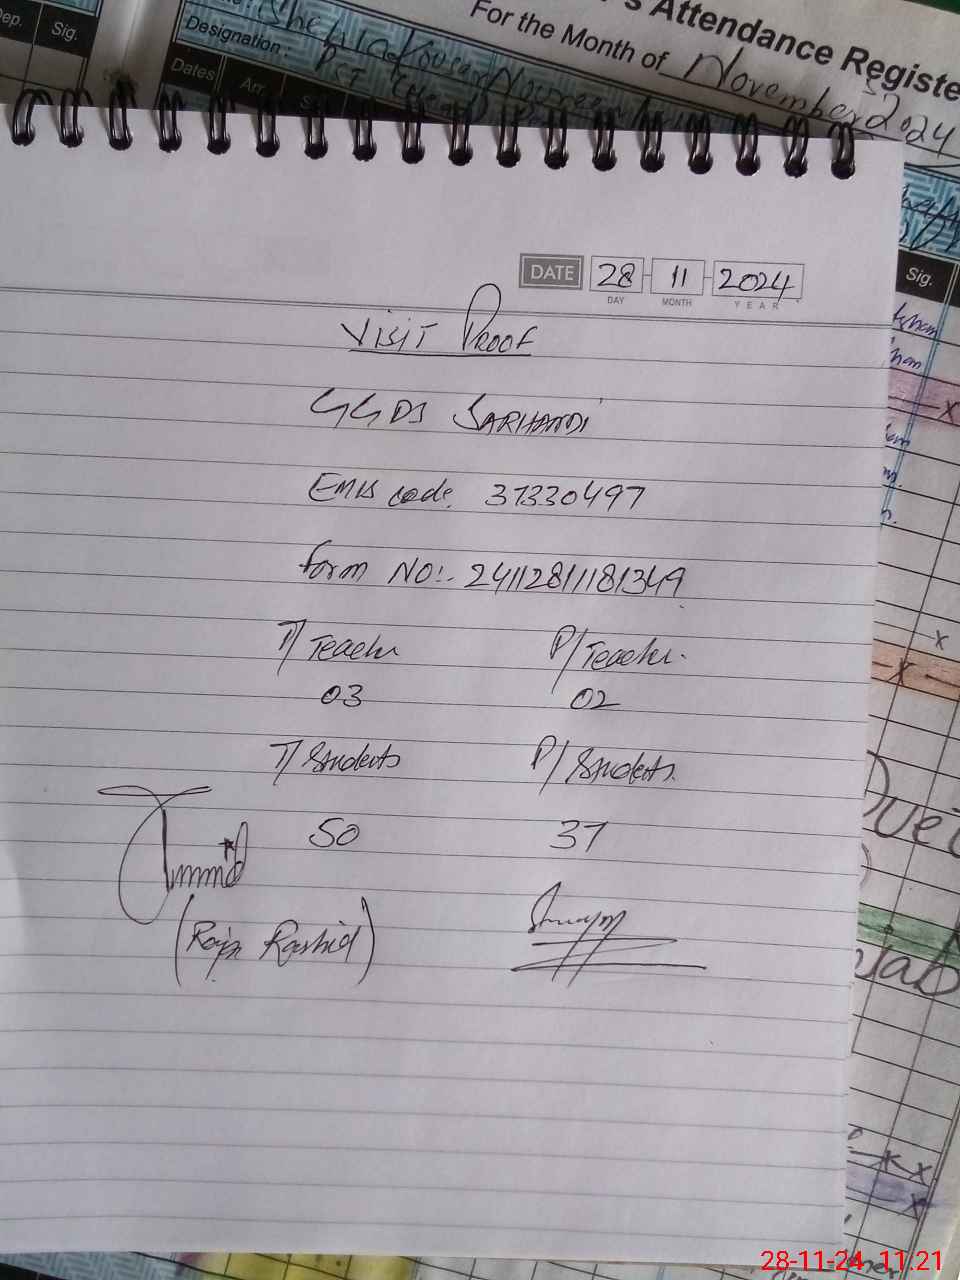 Dep. Sig.
's Attendance Registe
For the Month of November 2024
Designation : PST (Head)
Dates Arr. S
Sig.
DATE 28 11 2024
DAY MONTH YEAR
VISIT PROOF
GGPS SARHANDI
EMIS code. 37330497
Form NO:- 241128111181349
T/ Teacher P/ Teacher.
03 02
T/ Students P/ Students.
50 37
(Raja Rashid)
28-11-24 11:21